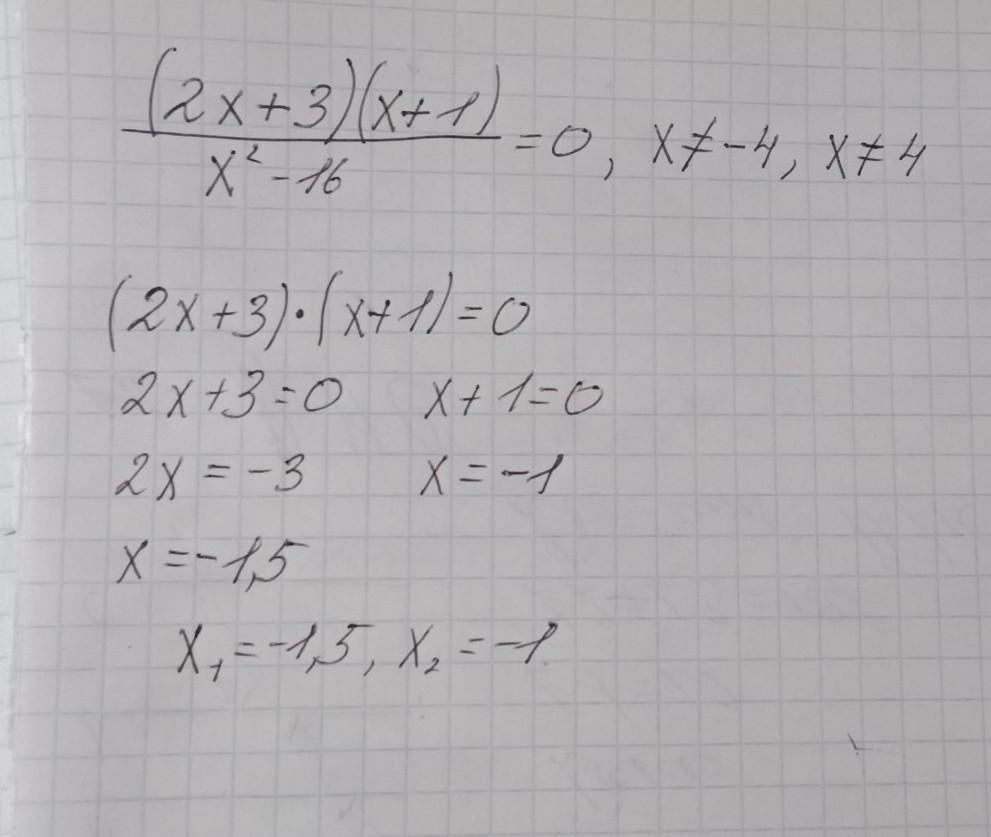 (2x+3)(x+1)
x²-16 =0, x≠-4, x≠4
(2x+3)·(x+1)=0
2x+3=0 x+1=0
2x=-3 x=-1
x=-1,5
x₁=-1,5, x₂=-1